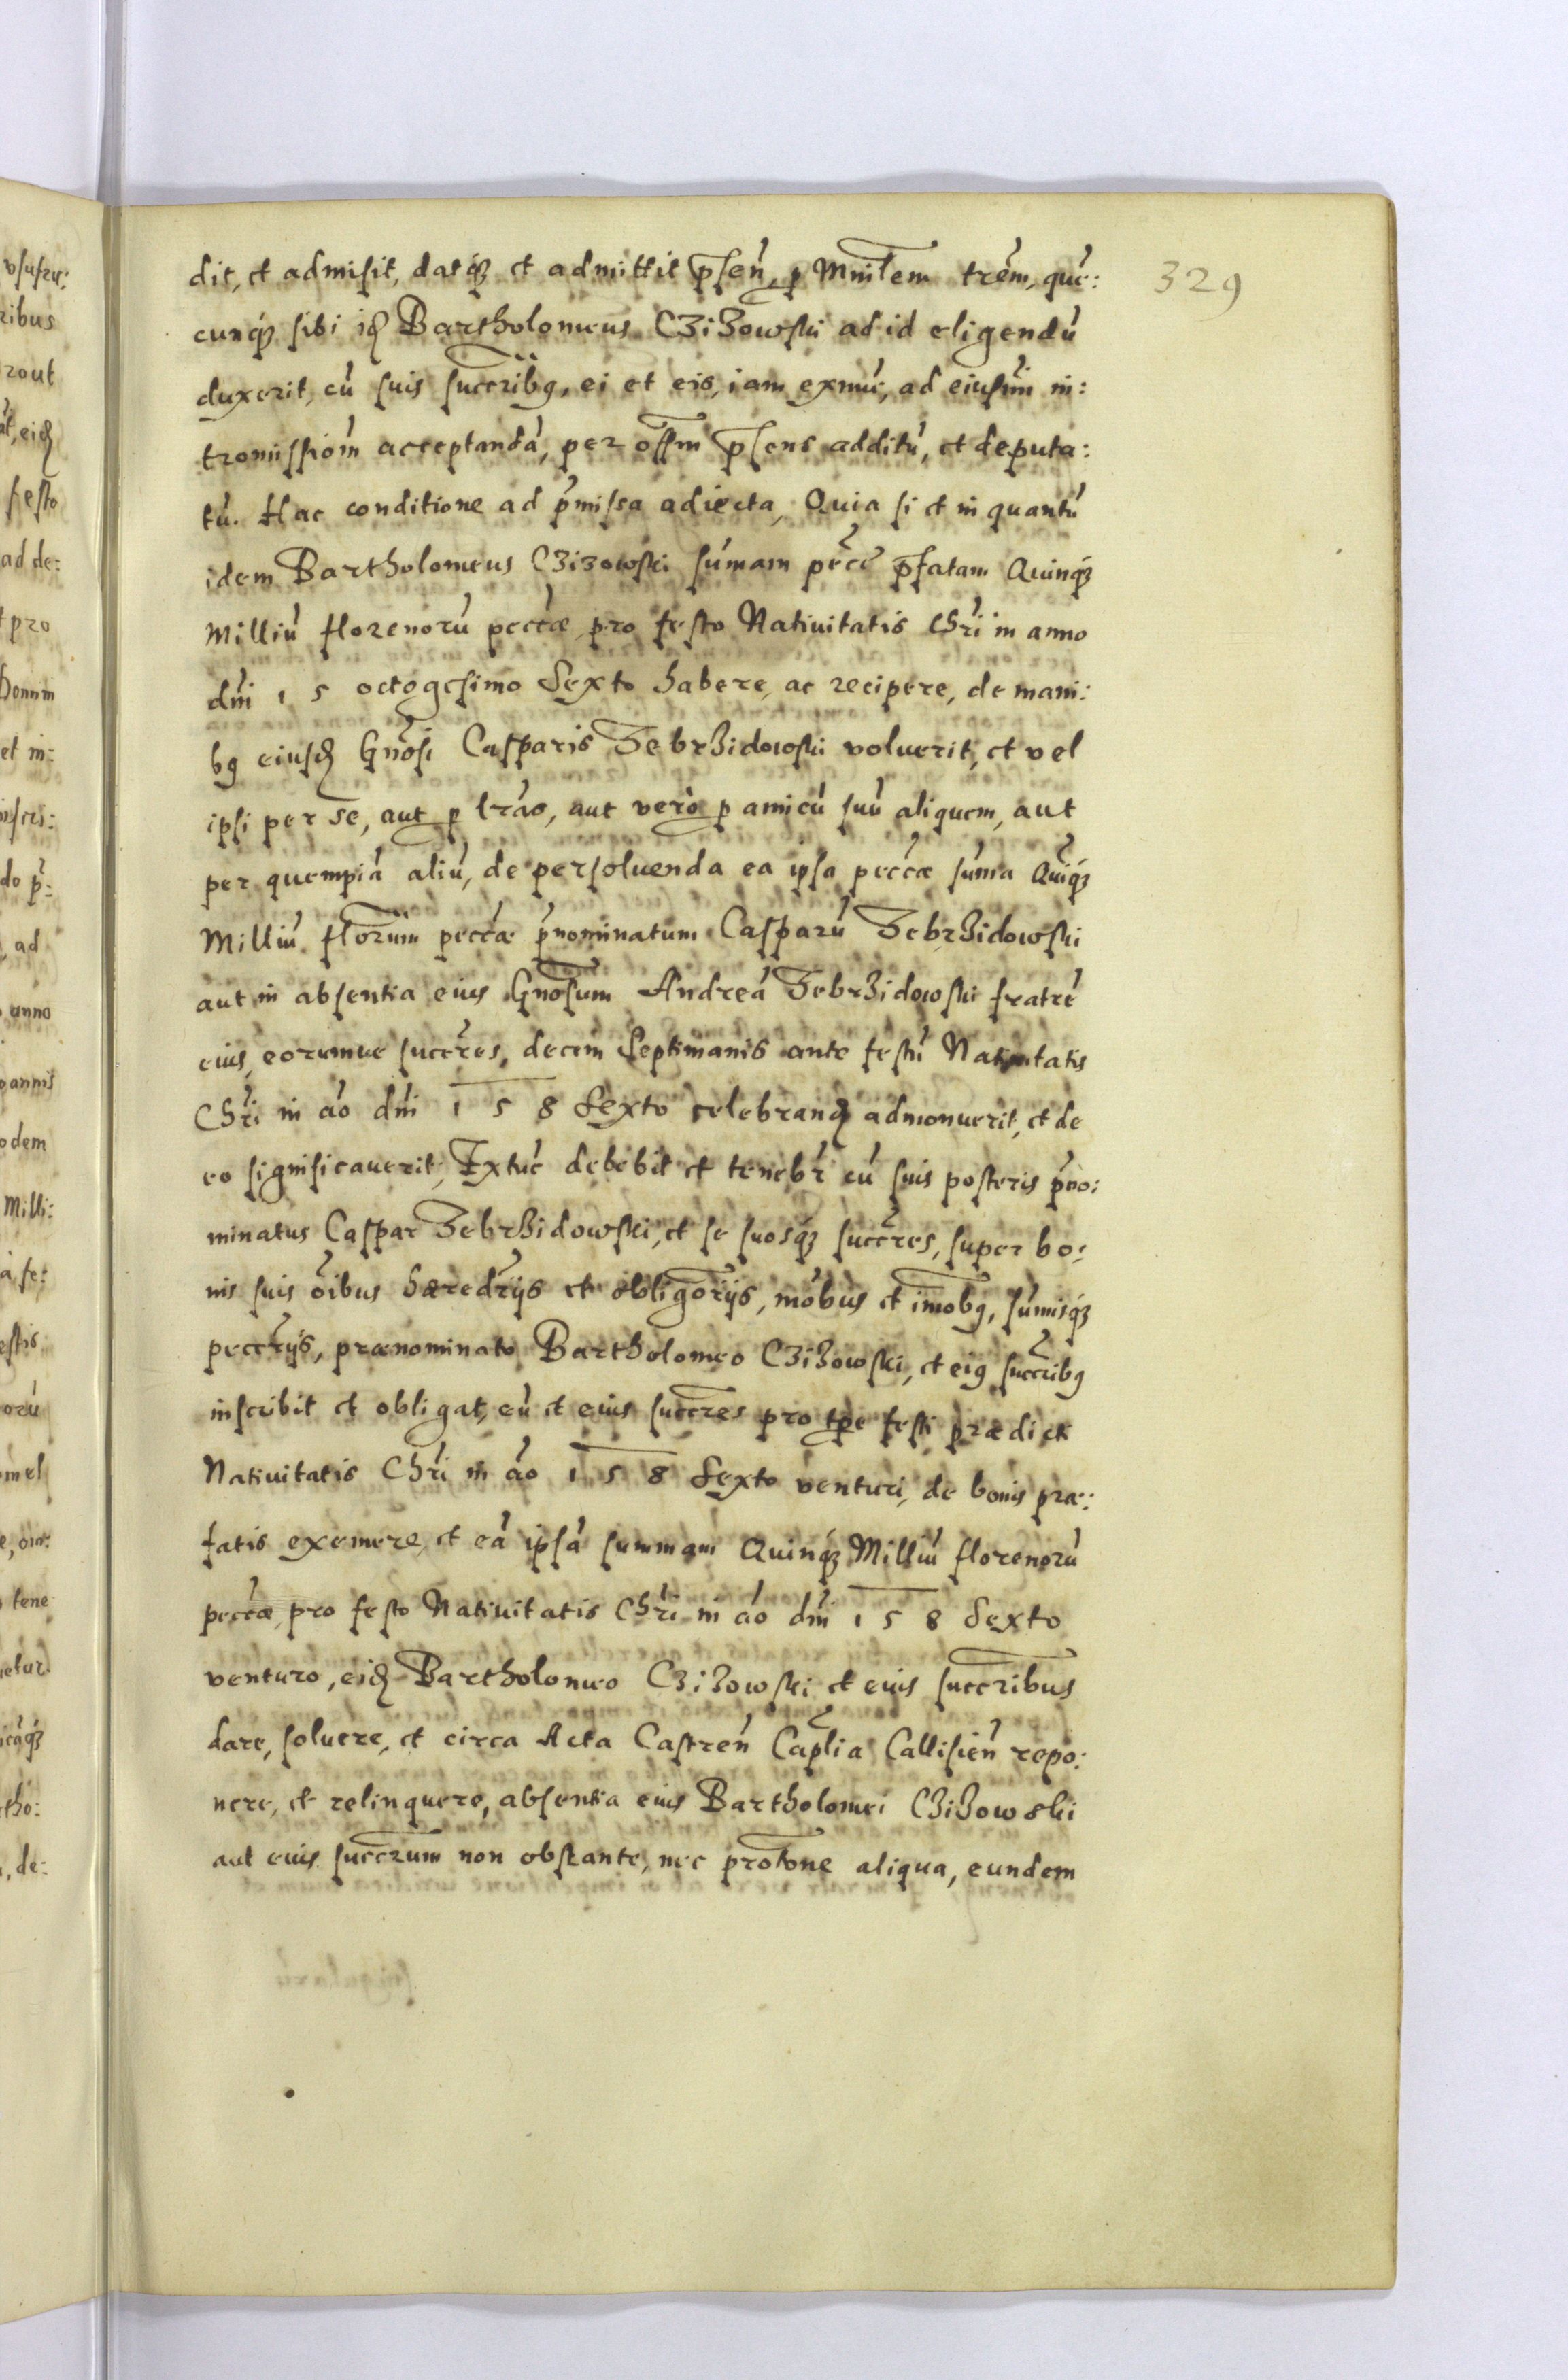 329
dit, et admisit, datq́ꝫ et admittit p̄sen̄, ꝑ Mnr̄lem trēm, quē:
cunq́ꝫ sibi id̄ Bartholomeus CziZowski ad id eligendū
duxerit, cū suis succrībꝯ, ei et eis, iam exnūc, ad eiusm̄i in:
tromissiōm acceptandā, per off̄m p̄sens additū, et deputa:
tū. Hac conditione ad p̄missa adiecta, Quia si et in quantū
idem Bartholomeus Czizowski sum̄am pecc̄e p̄fatam Quinq́ꝫ
Milliū florenorū pecc̄æ pro festo Natiuitatis Chr̄i in anno
dn̄i 1 5 octogesimo Sexto habere, ac recipere, de mani:
bꝯ eiusd̄ Gnōsi Casparis Zebrzidowski voluerit, et vel
ipsi per se, aut ꝑ l̄rās, aut vero ꝑ amicū suū aliquem, aut
per quempiā aliū, de persoluenda ea ipsa pecc̄æ sum̄a Quīq́ꝫ
Milliū flōrum pecc̄æ p̄nominatum Casparū Zebrzidowski
aut in absentia eius Gnōsum Andreā Zebrzidowski fratrē
eius, eorumue succr̄es, decem Septimanis ante festū Natiuitatis
Chr̄i in āo dn̄i 1 5 8 Sexto celebrand̄ admonuerit, et de
eo significauerit, Extūc debebit et tenebr̄ cū suis posteris p̄no:
minatus Caspar Zebrzidowski, et se suosq́ꝫ succr̄es, super bo:
nis suis ōibus hæredr̄ijs et obligōrijs, mōbus et im̄obꝯ, sum̄isq́ꝫ
peccr̄ijs, prænominato Bartholomeo CziZowski, et eiꝯ succrībꝯ
inscribit et obligat, eū et eius succr̄es pro tp̄e festi prædicti
Natiuitatis Chr̄i in āo 1 5 8 Sexto venturi, de bonis præ:
fatis exemere, et eā ipsā summam Quinq́ꝫ Milliū florenorū
pecc̄æ pro festo Natiuitatis Chr̄i in āo dn̄i 1 5 8 Sexto
venturo, eid̄ Bartholomeo CziZowski et eius succrībus
dare, soluere, et circa Acta Castren̄ Cap̄lia Callisien̄ repo:
nere, et relinquere, absentia eius Bartholomei CziZowski
aut eius succr̄um non obstante, nec protōne aliqua, eundem